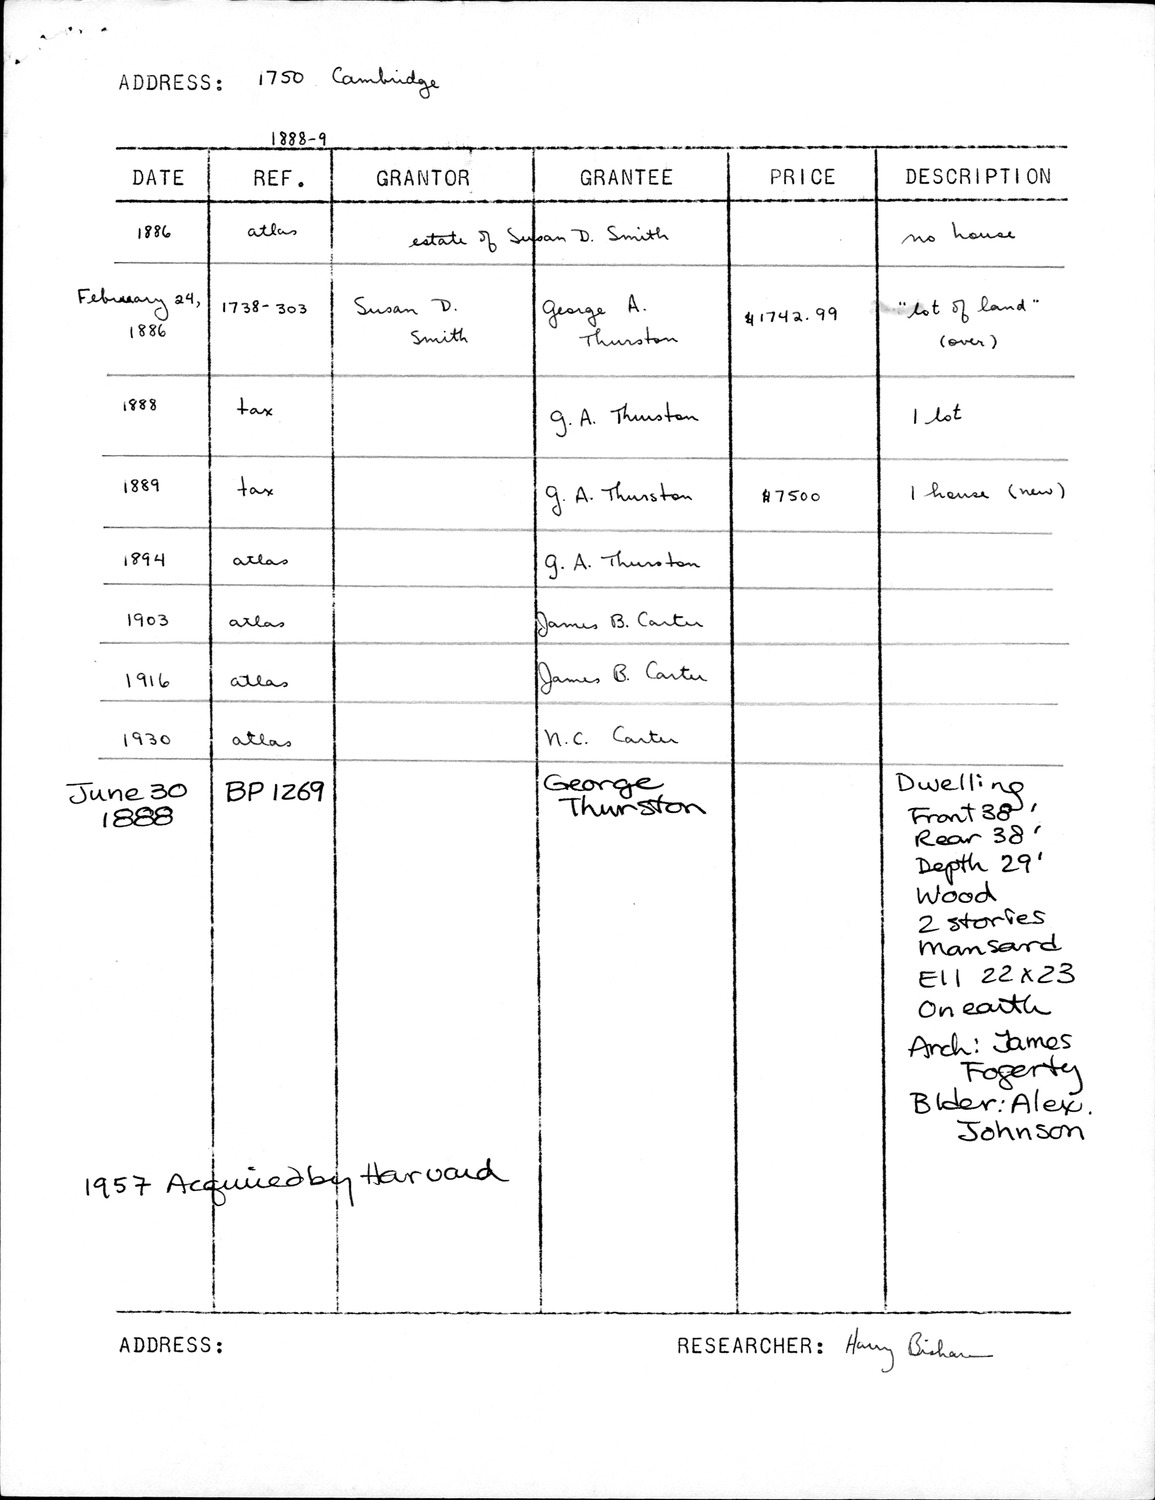 ADDRESS: 1750 Cambridge
1888-9
DATE REF. GRANTOR GRANTEE PRICE DESCRIPTION
1886 atlas estate of Susan D. Smith no house
February 24, 1738-303 Susan D. George A. $1742.99 "lot of land"
1886 Smith Thurston (over)
1888 tax G. A. Thurston 1 lot
1889 tax G. A. Thurston $7500 1 house (new)
1894 atlas G. A. Thurston
1903 atlas James B. Carter
1916 atlas James B. Carter
1930 atlas N.C. Carter
June 30 BP 1269 George Dwelling
1888 Thurston Front 38'
Rear 38'
Depth 29'
Wood
2 stories
Mansard
Ell 22x23
On earth
Arch: James
Fogerty
Blder: Alex.
Johnson
1957 Acquired by Harvard
ADDRESS: RESEARCHER: Harry